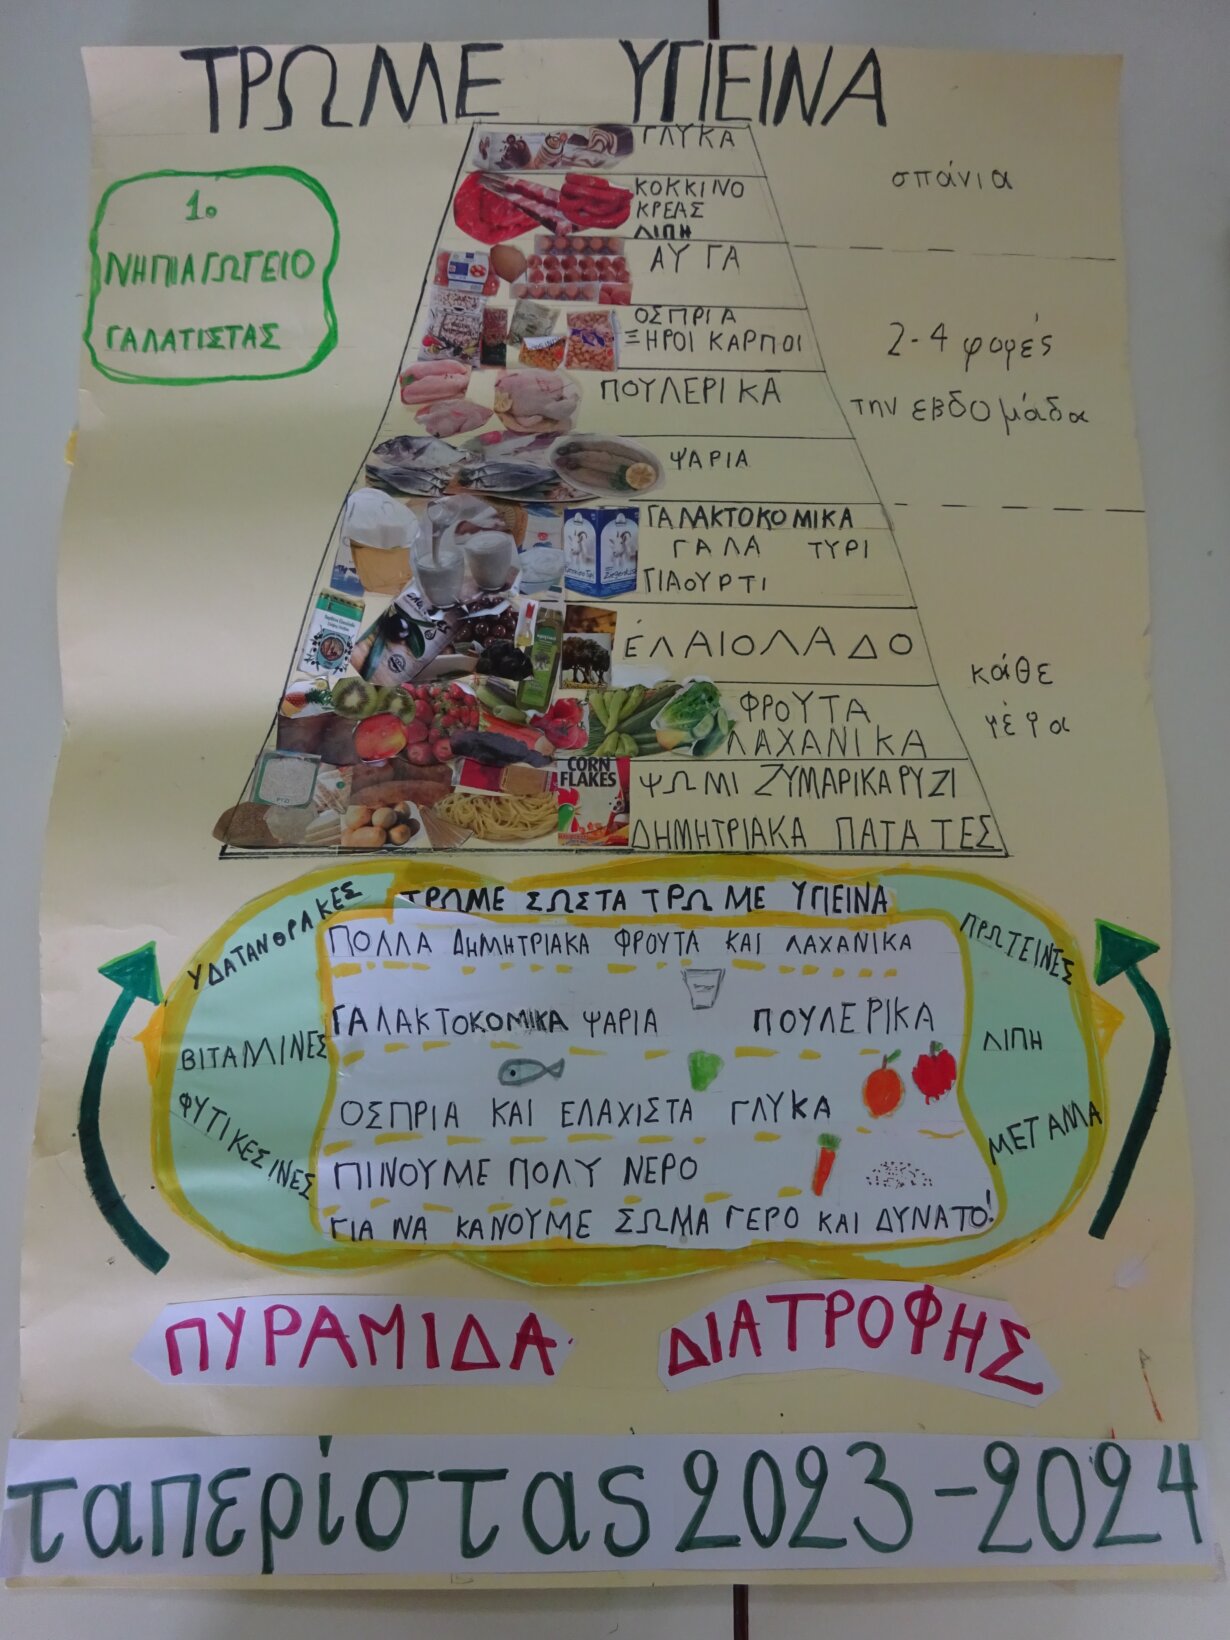 ΤΡΩΜΕ ΥΓΙΕΙΝΑ
1ο
ΝΗΠΙΑΓΩΓΕΙΟ
ΓΑΛΑΤΙΣΤΑΣ
ΓΛΥΚΑ
ΚΟΚΚΙΝΟ
ΚΡΕΑΣ
ΛΙΠΗ
σπάνια
ΑΥΓΑ
ΟΣΠΡΙΑ
ΞΗΡΟΙ ΚΑΡΠΟΙ
ΠΟΥΛΕΡΙΚΑ
ΨΑΡΙΑ
2-4 φορές
την εβδομάδα
ΓΑΛΑΚΤΟΚΟΜΙΚΑ
ΓΑΛΑ ΤΥΡΙ
ΓΙΑΟΥΡΤΙ
ΕΛΑΙΟΛΑΔΟ
ΦΡΟΥΤΑ
ΛΑΧΑΝΙΚΑ
κάθε
μέρα
CORN
FLAKES
ΡΥΖΙ
ΨΩΜΙ ΖΥΜΑΡΙΚΑ ΡΥΖΙ
ΔΗΜΗΤΡΙΑΚΑ ΠΑΤΑΤΕΣ
ΤΡΩΜΕ ΣΩΣΤΑ ΤΡΩΜΕ ΥΓΙΕΙΝΑ
ΥΔΑΤΑΝΘΡΑΚΕΣ
ΒΙΤΑΜΙΝΕΣ
ΦΥΤΙΚΕΣ ΙΝΕΣ
ΠΟΛΛΑ ΔΗΜΗΤΡΙΑΚΑ ΦΡΟΥΤΑ ΚΑΙ ΛΑΧΑΝΙΚΑ
ΓΑΛΑΚΤΟΚΟΜΙΚΑ ΨΑΡΙΑ ΠΟΥΛΕΡΙΚΑ
ΟΣΠΡΙΑ ΚΑΙ ΕΛΑΧΙΣΤΑ ΓΛΥΚΑ
ΠΙΝΟΥΜΕ ΠΟΛΥ ΝΕΡΟ
ΓΙΑ ΝΑ ΚΑΝΟΥΜΕ ΣΩΜΑ ΓΕΡΟ ΚΑΙ ΔΥΝΑΤΟ!
ΠΡΩΤΕΙΝΕΣ
ΛΙΠΗ
ΜΕΤΑΛΛΑ
ΠΥΡΑΜΙΔΑ ΔΙΑΤΡΟΦΗΣ
ταπερίστας 2023-2024